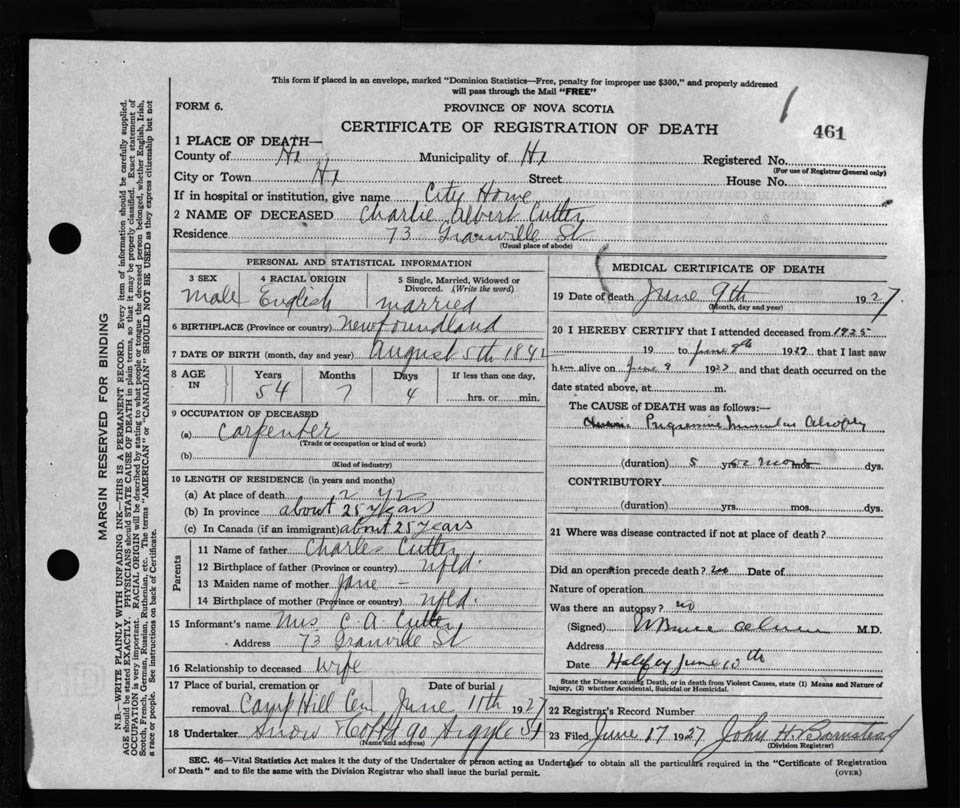 This form if placed in an envelope, marked "Dominion Statistics—Free, penalty for improper use $300," and properly addressed
will pass through the Mail "FREE"
FORM 6.
PROVINCE OF NOVA SCOTIA
CERTIFICATE OF REGISTRATION OF DEATH
461
1 PLACE OF DEATH—
County of Hx Municipality of Hx Registered No.
(For use of Registrar General only)
City or Town Hx Street House No.
If in hospital or institution, give name City Home
2 NAME OF DECEASED Charlie Albert Cutter
Residence 73 Granville St
(Usual place of abode)
PERSONAL AND STATISTICAL INFORMATION
3 SEX 4 RACIAL ORIGIN 5 Single, Married, Widowed or Divorced. (Write the word)
Male English Married
6 BIRTHPLACE (Province or country) Newfoundland
7 DATE OF BIRTH (month, day and year) August 5th
8 AGE IN Years Months Days If less than one day,
54 7 4 hrs. or min.
9 OCCUPATION OF DECEASED
(a) Carpenter
(Trade or occupation or kind of work)
(b)
(Kind of industry)
10 LENGTH OF RESIDENCE (in years and months)
(a) At place of death 2
(b) In province about 25 years
(c) In Canada (if an immigrant) about 25 years
Parents
11 Name of father Charles Cutter
12 Birthplace of father (Province or country) Nfld.
13 Maiden name of mother Jane –
14 Birthplace of mother (Province or country) Nfld.
15 Informant's name Mrs C. A. Cutter
- Address 73 Granville St
16 Relationship to deceased Wife
17 Place of burial, cremation or removal Camp Hill Cem Date of burial June 11th 1927
18 Undertaker Snow 90 Argyle St
(Name and address)
MEDICAL CERTIFICATE OF DEATH
19 Date of death June 9th 1927
(Month, day and year)
20 I HEREBY CERTIFY that I attended deceased from 1925
19 to June 1927 that I last saw
him alive on June 9 1927 and that death occurred on the
date stated above, at m.
The CAUSE OF DEATH was as follows:—
Progressive Muscular Atrophy
(duration) 5 yrs. mos. dys.
CONTRIBUTORY
(duration) yrs. mos. dys.
21 Where was disease contracted if not at place of death?
Did an operation precede death? no Date of
Nature of operation
Was there an autopsy? no
(Signed) M.D.
Address
Date Halifax June 10th
State the Disease causing Death, or in death from Violent Causes, state (1) Means and Nature of
Injury, (2) whether Accidental, Suicidal or Homicidal.
22 Registrar's Record Number
23 Filed June 17 1927 John H. Barnstead
(Division Registrar)
SEC. 46—Vital Statistics Act makes it the duty of the Undertaker or person acting as Undertaker to obtain all the particulars required in the "Certificate of Registration
of Death" and to file the same with the Division Registrar who shall issue the burial permit.
(OVER)
MARGIN RESERVED FOR BINDING
N.B.—WRITE PLAINLY WITH UNFADING INK—THIS IS A PERMANENT RECORD. Every item of information should be carefully supplied.
AGE should be stated EXACTLY. PHYSICIANS should STATE CAUSE OF DEATH in plain terms, so that it may be properly classified. Exact statement of
OCCUPATION is very important. RACIAL ORIGIN will be described by stating to what people or tongue the deceased person belonged, whether English, Irish,
Scotch, French, German, Russian, Ruthenian, etc. The terms "AMERICAN" or "CANADIAN" SHOULD NOT BE USED as they express citizenship but not
a race or people. See instructions on back of Certificate.